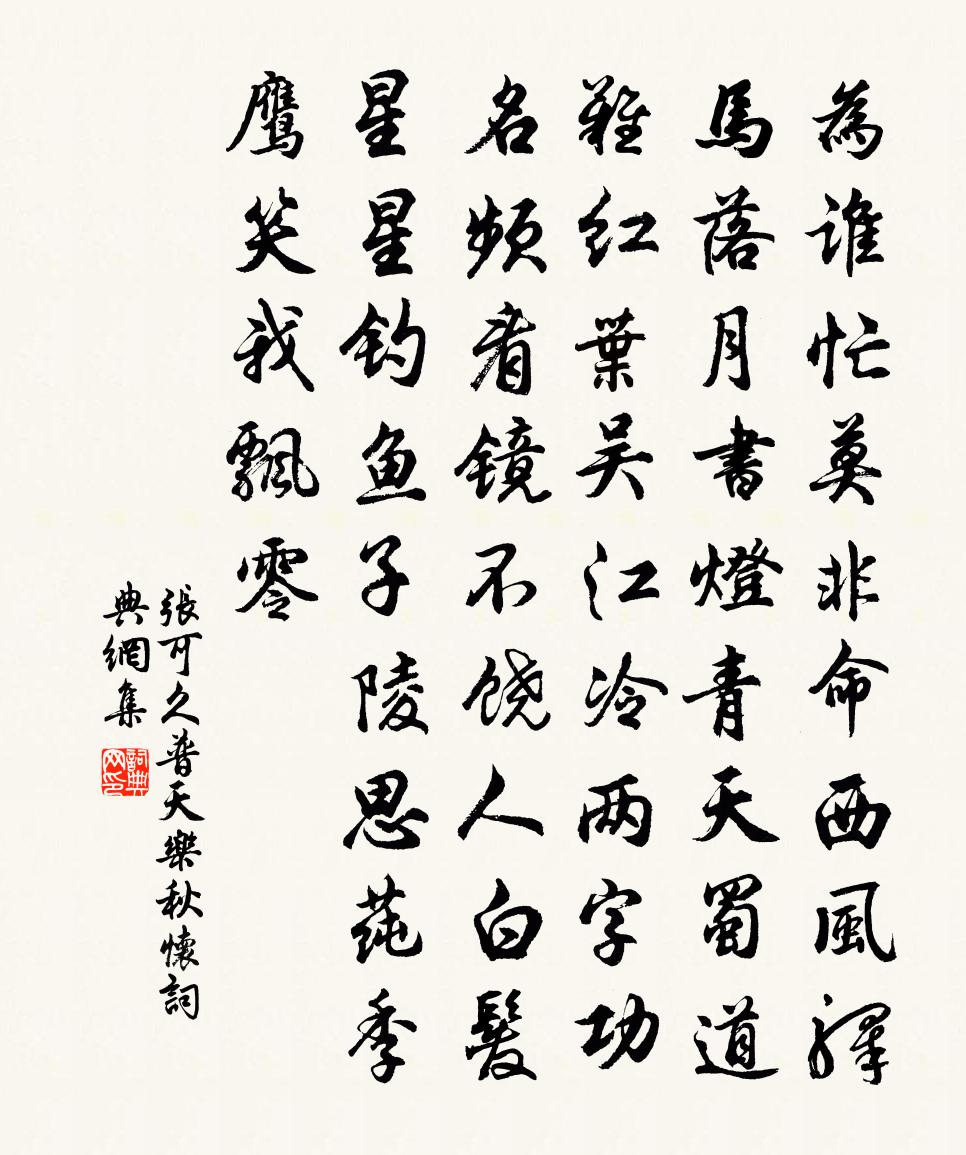 為誰忙莫非命西風驛
馬落月書燈青天蜀道
難红葉吴江冷两字功
名頻看镜不饶人白髮
星星钓鱼子陵思莼季
鹰笑我飄零
張可久普天樂秋懷詞
典網集
詞典
网印